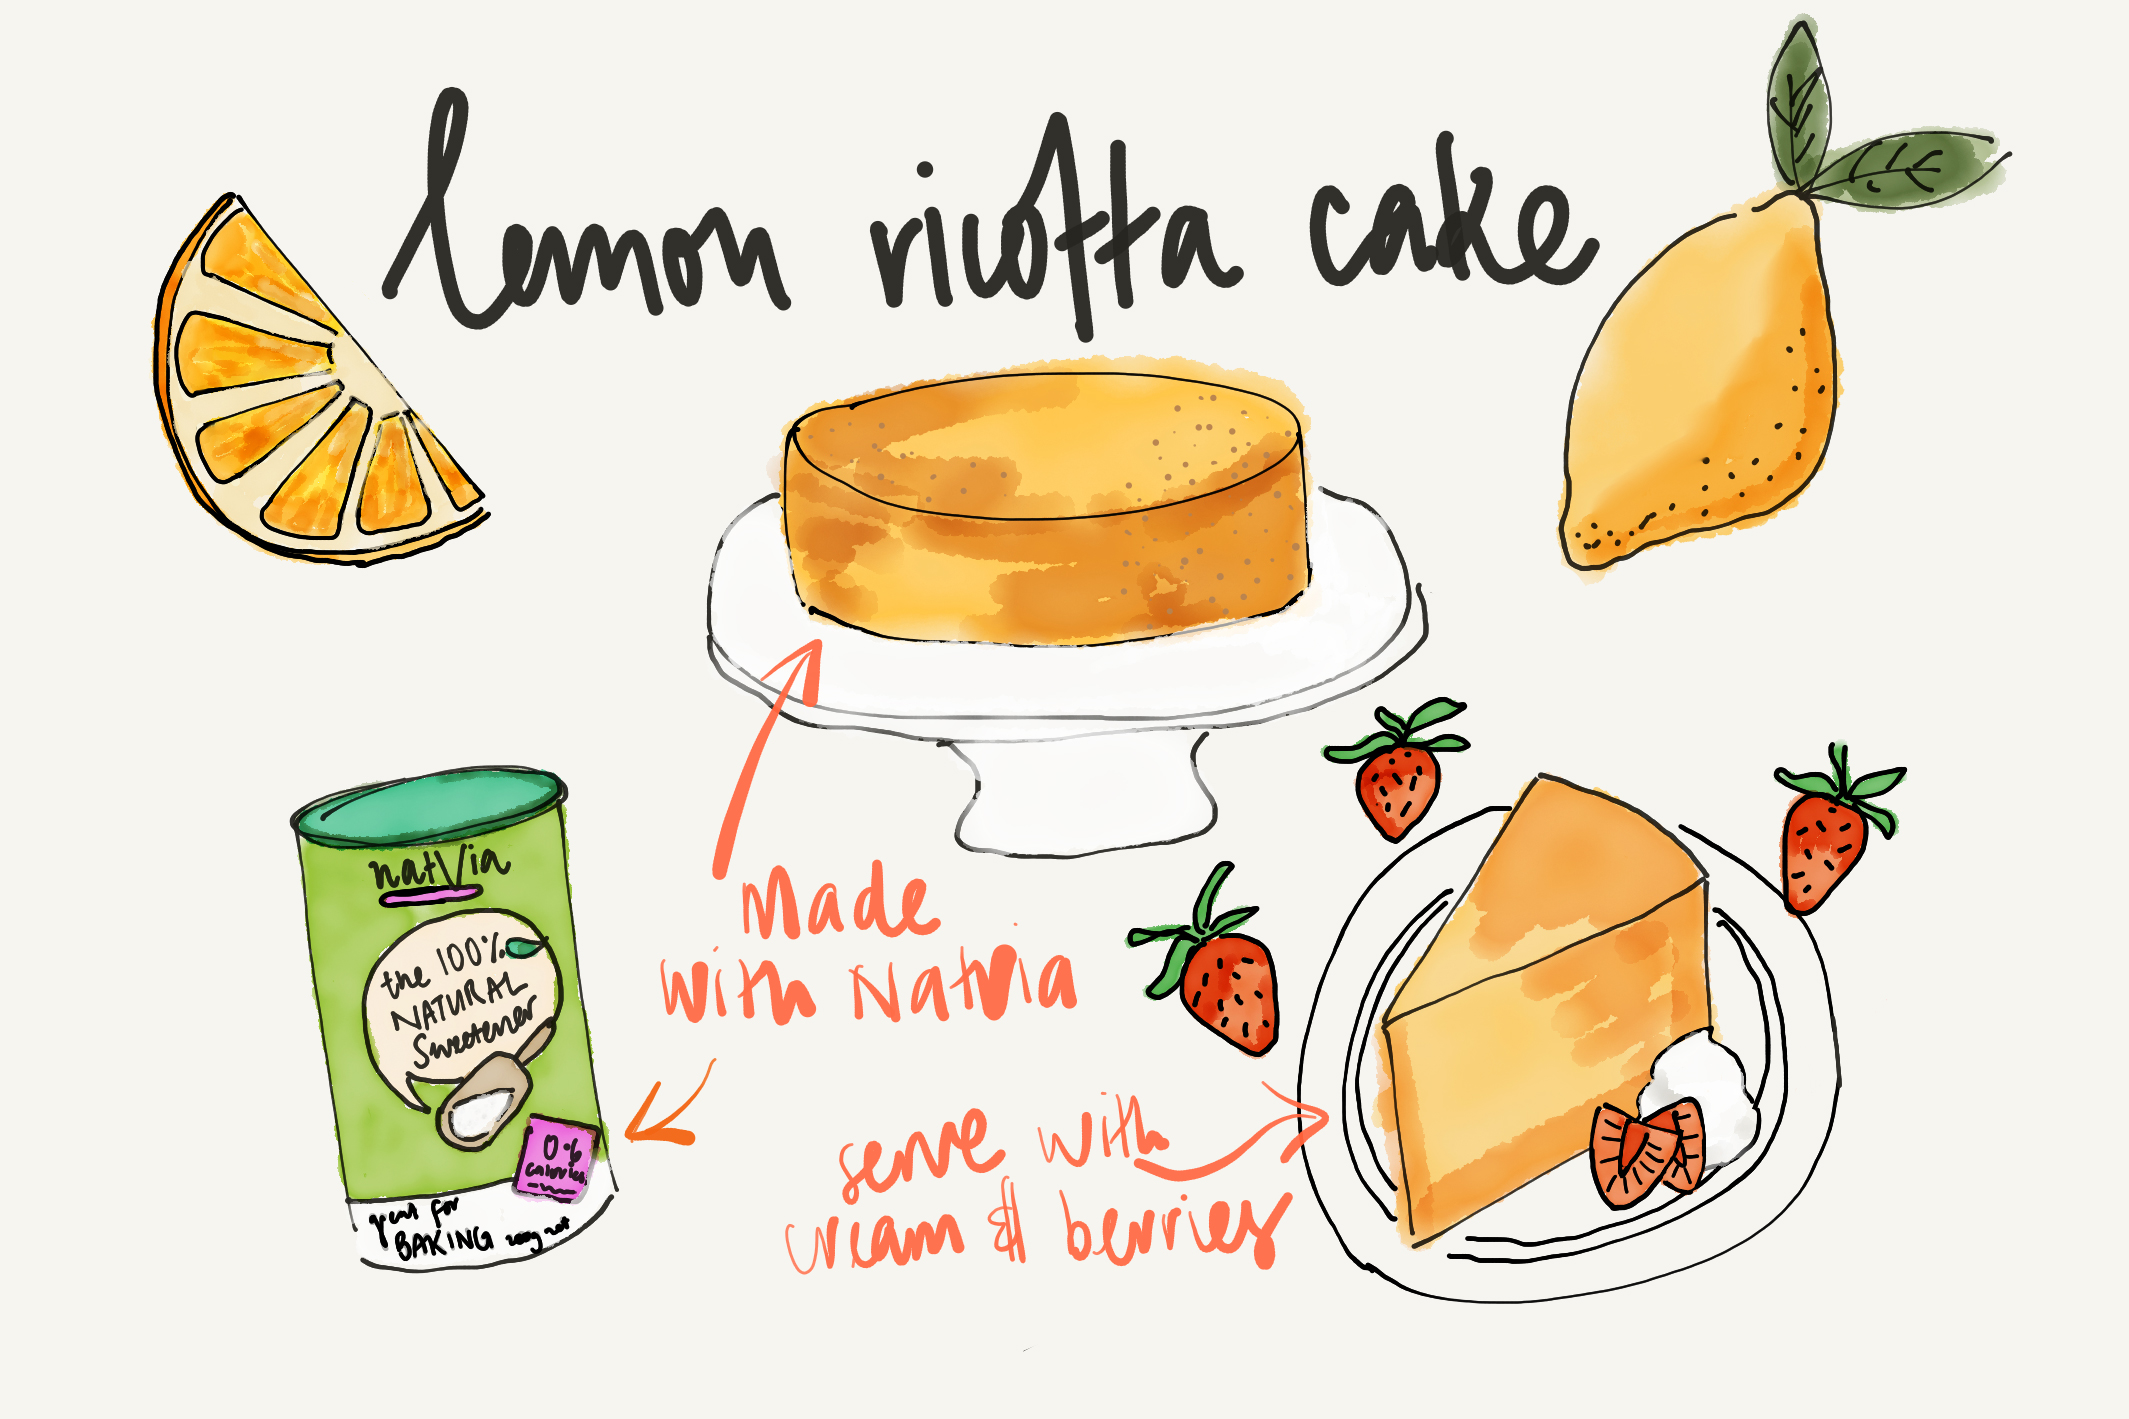 lemon ricotta cake
Made
with Natvia
serve with
cream & berries
natvia
the 100%
NATURAL
Sweetener
calories
great for
BAKING